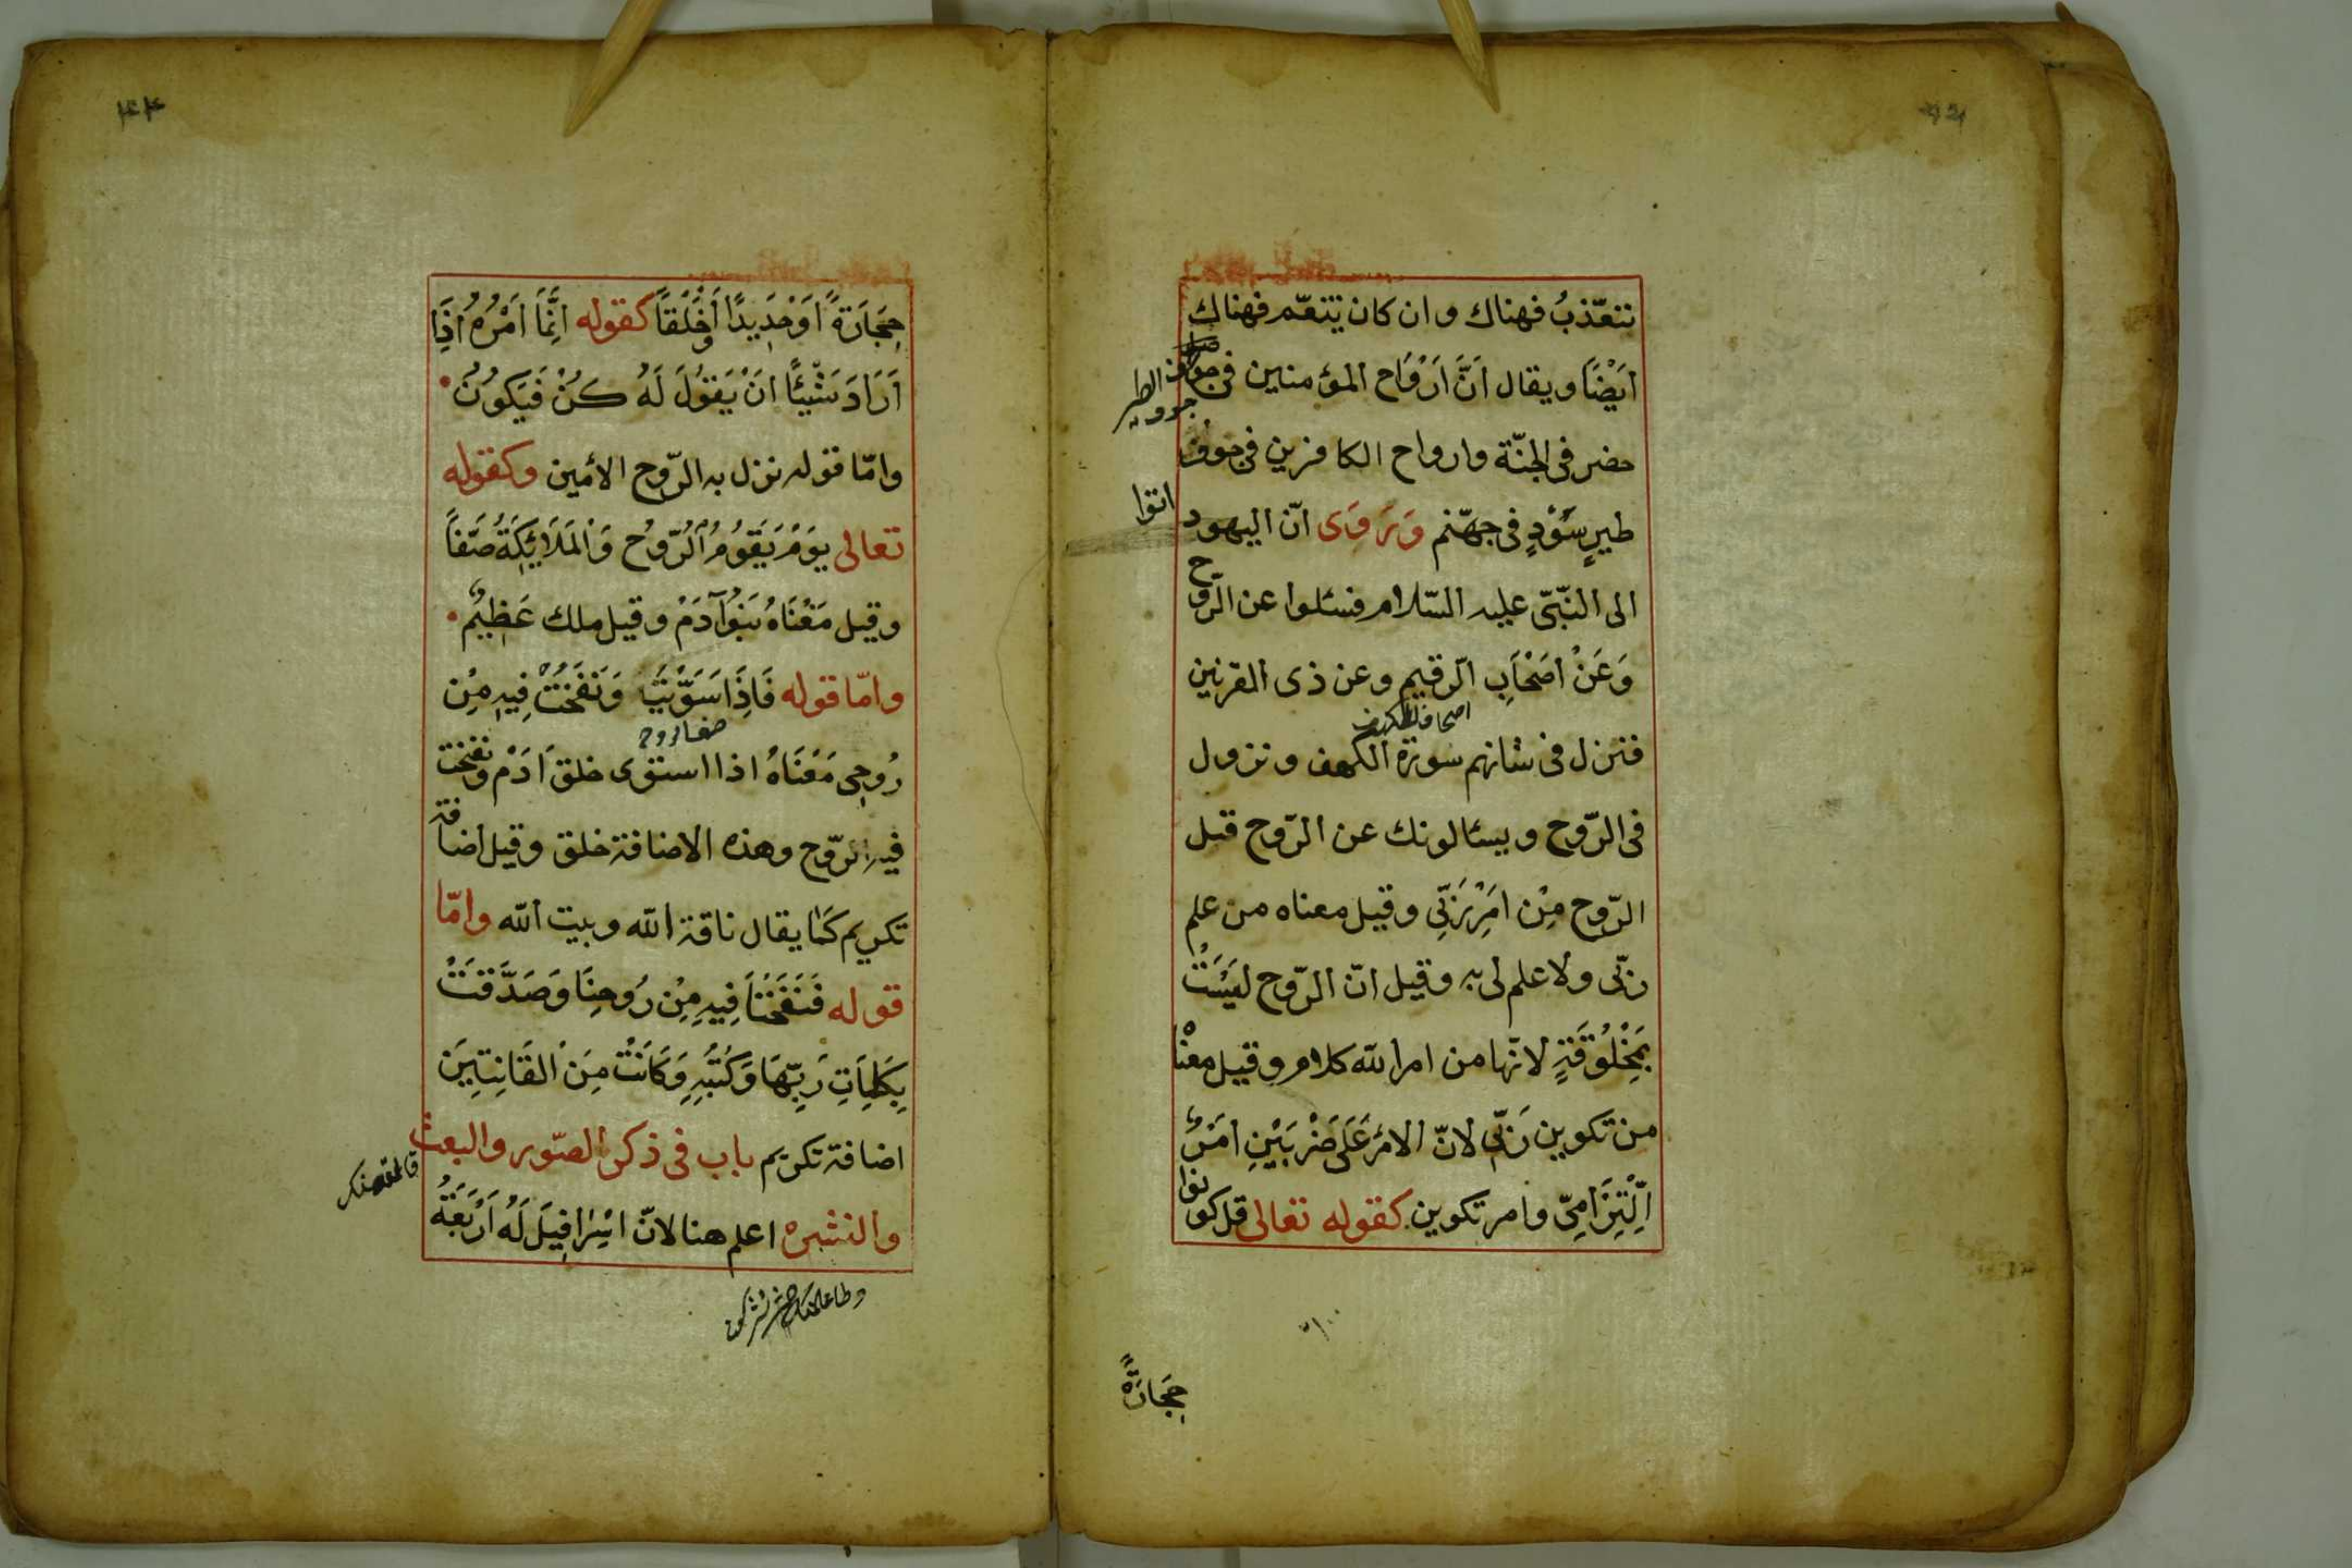 تتعّذبُ فهناك وان كان يتنعّم فهناك
اَيْضًا ويقال اَنَّ اَرْوَاح المؤمنين فى جواف
الطير
حضر فى الجنّة وارواح الكافرين فى جوف
طيرٍ سَوْدٍ فى جهّنم وَيَرْوَى انّ اليهود
اتوا
الى النبّىّ عليه السّلام فسئلوا عن الرّوح
وَعَنْ اَصْحَابِ الرّقيم وعن ذى القرنين
فنزل فى شانهم سورة الكهف ونزول
فى الرّوح ويسئالونك عن الرّوح قبل
الرّوح مِنْ اَمْرِ رَبِّى وقيل معناه من علم
ربّى ولا علم لى به وقيل انّ الرّوح ليَسَتْ
بِمَخْلُوْقَةٍ لانّها من امر الله كلام وقيل معنْا
من تكوين رَبّى لانّ الامْرَ عَلَى ضَرْبَيْنِ اَمْرٌ
اِلْتِزَامِىّ وامر تكوين كقوله تعالى قل كونوا
حِجَارَةً
٤٣
حِجَارَةً اَوْ حَدِيدًا اَوْخَلْقاً كقوله اِنَّمَا اَمْرُهُ اِذَا
اَرَادَ شَيْئًا اَنْ يَقُوْلَ لَهُ كُنْ فَيَكُوْنُ
وامّا قوله نزل به الرّوح الاَمين وكقوله
تعالى يَوْمَ يَقُوْمُ الرُّوْحُ وَالْمَلَائِكَةُ صَفّاً
وقيل مَعْنَاهُ بَنُوْآدَمْ وقيل ملك عَظِيْمٌ
وامّا قوله فَاِذَا سَوَّيْتُ وَنَفَخْتُ فِيهِ مِنْ
رُوحِى مَعْنَاهُ اذا استوى خلق آدَمْ ونفخت
فيه الرّوح وهذه الاضافة خلق وقيل اضافة
تكريم كَمَا يقال ناقة الله وبيت الله وامّا
قوله فَنَفَخْنَا فِيهِ مِنْ رُوحِنَا وَصَدَّقَتْ
بِكَلِمَاتِ رَبِّهَا وَكُتُبِهِ وَكَانَتْ مِنَ الْقَانِتِينَ
اضافة تكريم باب فى ذكر الصّور والبعث
والنشره اعلم هنا لانّ اسْرَافِيلَ لَهُ اَرْبَعَةُ